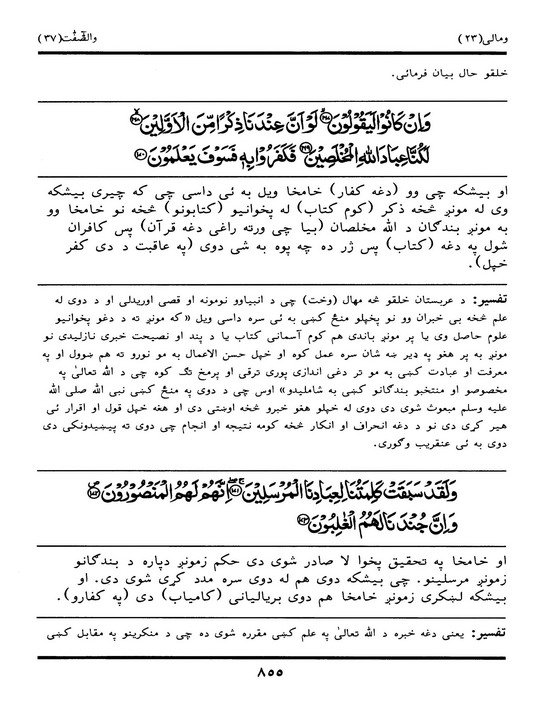 ومالي(٢٣) والصّٰفّٰت(٣٧)
خلقو حال بيان فرمائي.
وَاِنْ كَانُوْا لَيَقُوْلُوْنَ ﴿١٦٧﴾ لَوْ اَنَّ عِنْدَنَا ذِكْرًا مِّنَ الْاَوَّلِيْنَ ﴿١٦٨﴾
لَكُنَّا عِبَادَ اللّٰهِ الْمُخْلَصِيْنَ ﴿١٦٩﴾ فَكَفَرُوْا بِهٖ فَسَوْفَ يَعْلَمُوْنَ ﴿١٧٠﴾
او بيشكه چي وو (دغه كفار) خامخا ويل به ئې داسي چي كه چيري بيشكه
وى له مونږ څخه ذكر (كوم كتاب) له پخوانيو (كتابونو) څخه نو خامخا وو
به مونږ بندگان د الله مخلصان (بيا چي ورته راغى دغه قرآن) پس كافران
شول په دغه (كتاب) پس ژر ده چه پوه به شي دوى (په عاقبت د دي كفر
خپل).
تفسير: د عربستان خلقو څه مهال (وخت) چي د انبياوو نومونه او قصي اوريدلي او د دوى له
علم څخه بي خبران وو نو پخپلو منځ كښي به ئي سره داسي ويل «كه مونږ ته د دغو پخوانيو
علوم حاصل وى يا پر مونږ باندي هم كوم آسماني كتاب يا د پند او نصيحت خبري نازليدى نو
مونږ به پر هغو په ډير ښه شان سره عمل كوه او خپل حسن الاعمال به مو نورو ته هم ښوول او په
معرفت او عبادت كښي به مو تر دغي اندازي پوري ترقي او پرمخ تگ كوه چي د الله تعالىٰ په
مخصوصو او منتخبو بندگانو كښي به شامليدو» اوس چي د دوى په منځ كښي نبي الله صلى الله
عليه وسلم مبعوث شوى دى دوى له خپلو هغو خبرو څخه اوښتي دى او هغه خپل قول او اقرار ئي
هير كړى دى نو د دغه انحراف او انكار څخه كومه نتيجه او انجام چي دوى ته پيښيدونكى دى
دوى به ئي عنقريب وگوري.
وَلَقَدْ سَبَقَتْ كَلِمَتُنَا لِعِبَادِنَا الْمُرْسَلِيْنَ ﴿١٧١﴾ اِنَّهُمْ لَهُمُ الْمَنْصُوْرُوْنَ ﴿١٧٢﴾
وَاِنَّ جُنْدَنَا لَهُمُ الْغٰلِبُوْنَ ﴿١٧٣﴾
او خامخا په تحقيق پخوا لا صادر شوى دى حكم زمونږ دپاره د بندگانو
زمونږ مرسلينو. چي بيشكه دوى هم له دوى سره مدد كړى شوى دى. او
بيشكه لښكري زمونږ خامخا هم دوى بريالياني (كامياب) دى (په كفارو).
تفسير: يعني دغه خبره د الله تعالىٰ په علم كښي مقرره شوى ده چي د منكرينو په مقابل كښي
٨٥٥